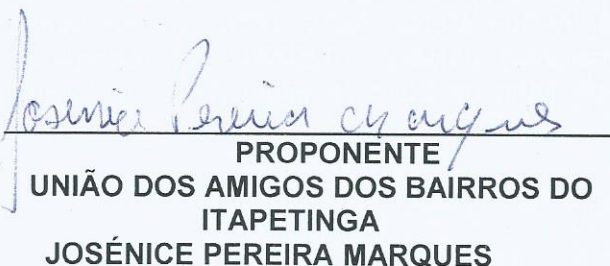 Josenice Pereira Marques
PROPONENTE
UNIÃO DOS AMIGOS DOS BAIRROS DO
ITAPETINGA
JOSÉNICE PEREIRA MARQUES